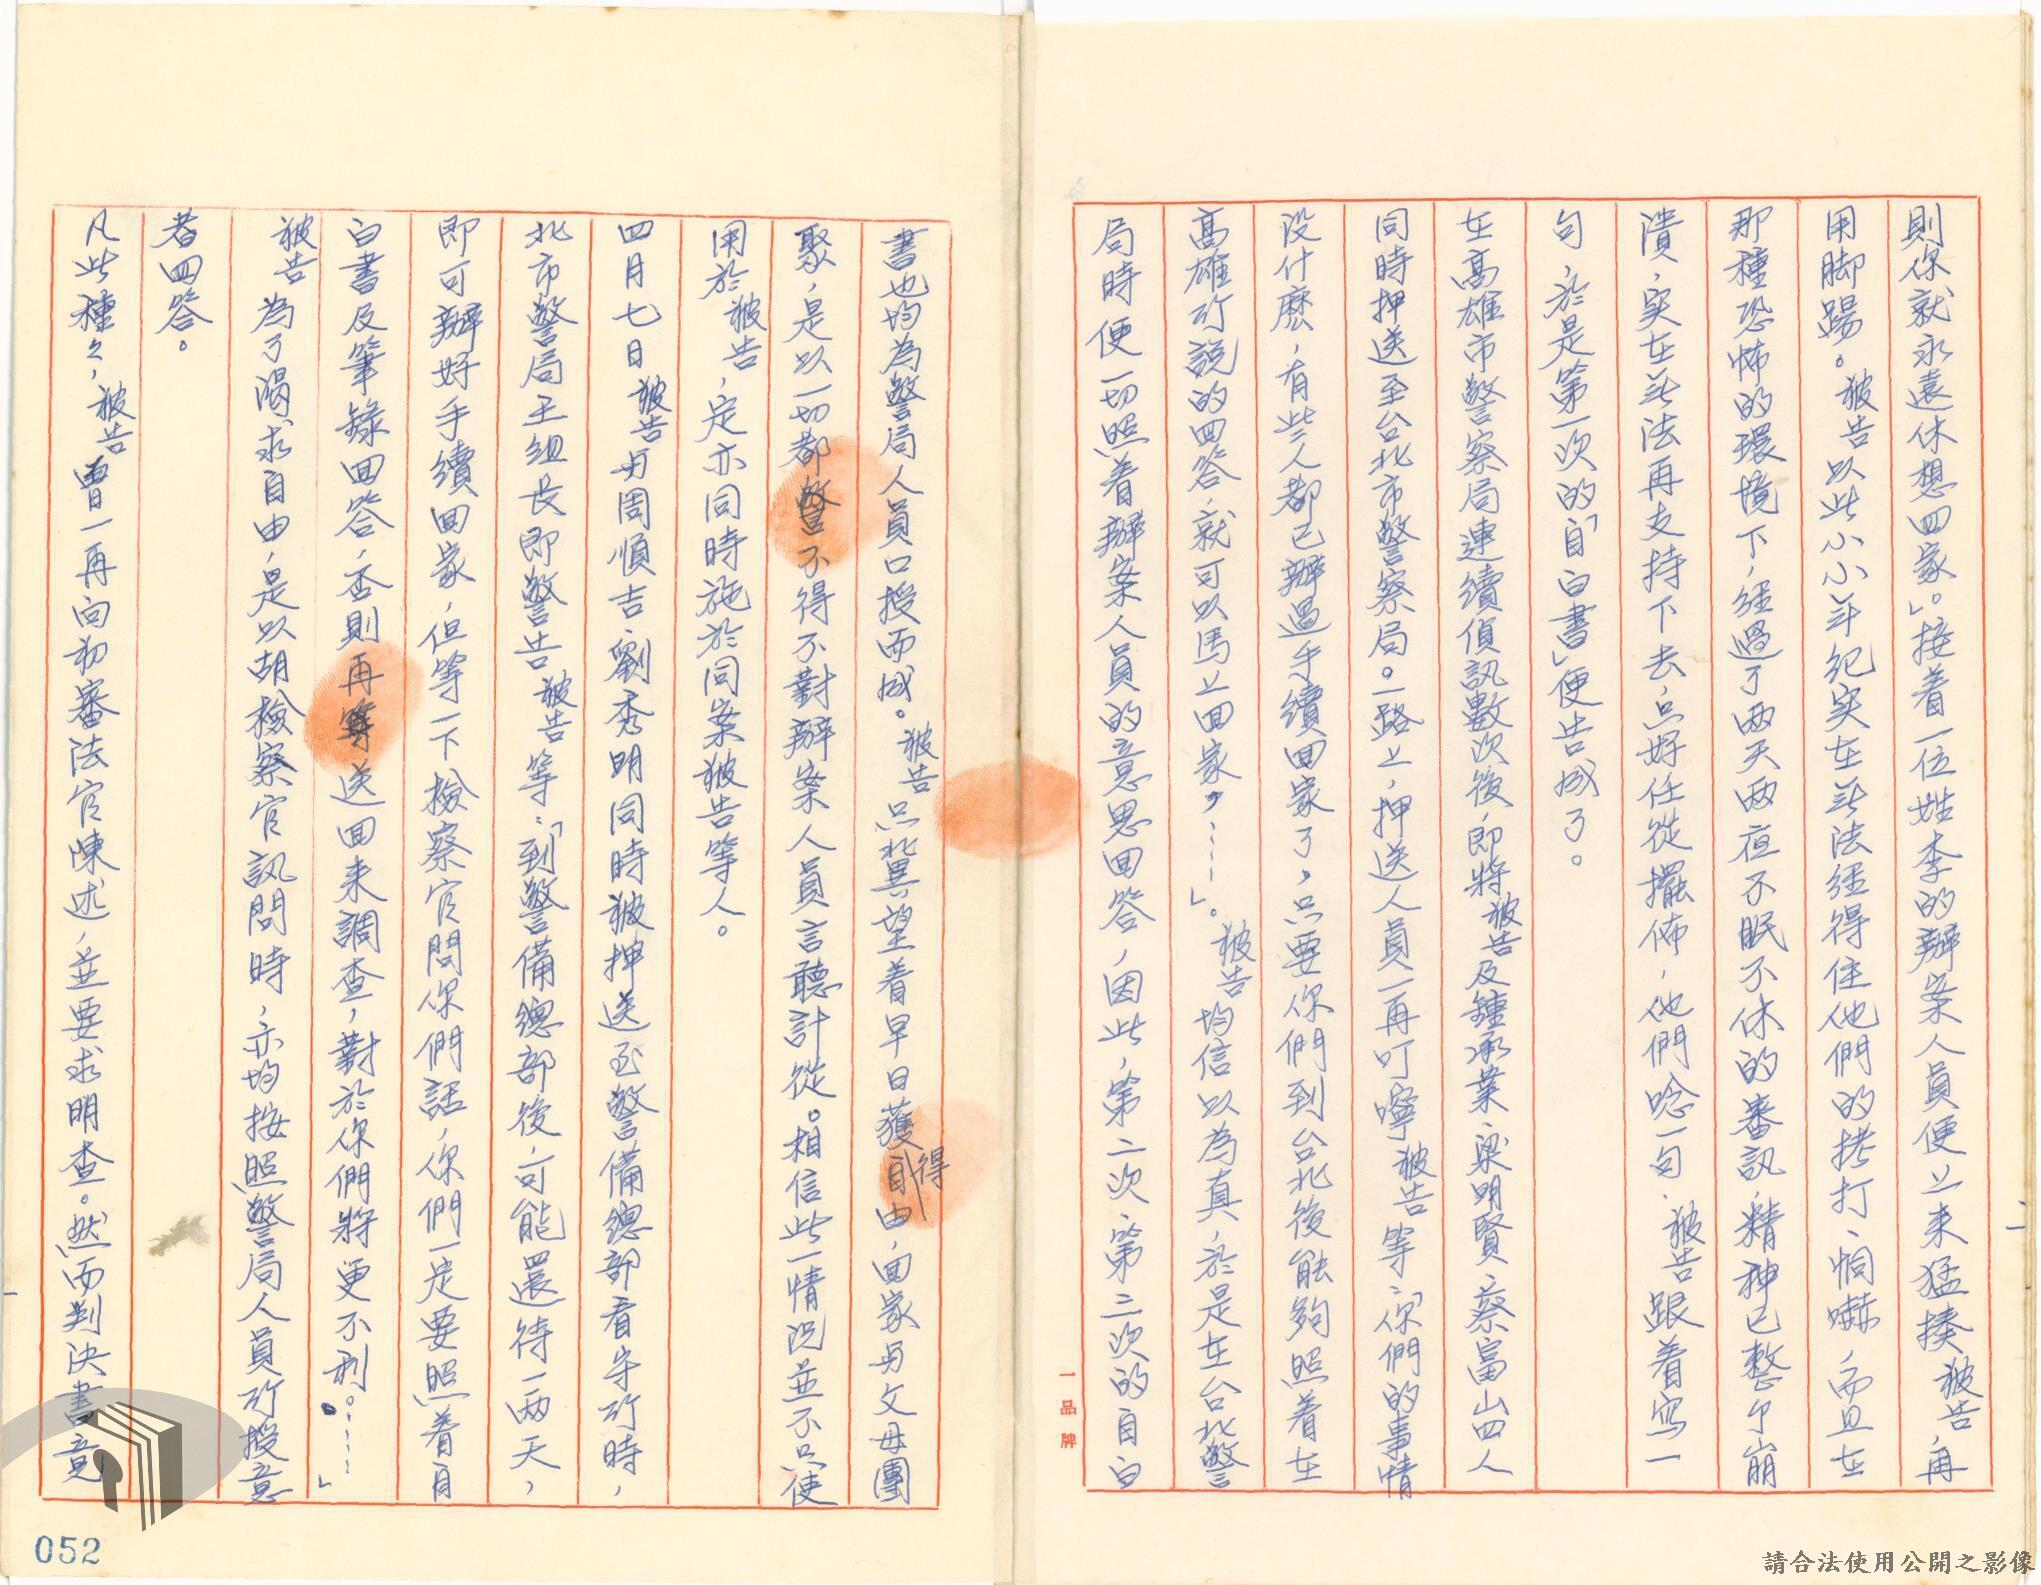 則你就永遠休想回家」。接着一位姓李的辦案人員便上來猛揍被告,再
用脚踢。被告以此小小年紀实在无法經得住他們的拷打、恫嚇,而且在
那種恐怖的環境下,經過了两天两夜不眠不休的審訊,精神已整个崩
潰,实在无法再支持下去,只好任從擺佈,他們唸一句,被告跟着寫一
句,於是第一次的「自白書」便告成了。
在高雄市警察局連續偵訊數次後,即將被告及鍾承業、梁明賢、蔡富山四人
同時押送至台北市警察局。一路上,押送人員一再叮嚀被告等:「你們的事情
没什麽,有些人都已辦過手續回家了,只要你們到台北後能夠照着在
高雄所說的回答,就可以馬上回家,……」。被告均信以為真,於是在台北警
局時便一切照着辦案人員的意思回答,因此,第二次、第三次的自白
書也均為警局人員口授而成。被告只冀望着早日獲得自由,回家与父母團
聚,是以一切都不得不對辦案人員言聽計從。相信此一情況並不只使
用於被告,定亦同時施於同案被告等人。
四月七日被告与周順吉、劉秀明同時被押送至警備總部看守所時,
北市警局王組長即警告被告等:「到警備總部後,可能還待一两天,
即可辦好手續回家,但等一下檢察官問你們話,你們一定要照着自
白書及筆錄回答,否則再送回來調查,對於你們將更不利。……」
被告為了渴求自由,是以胡檢察官訊問時,亦均按照警局人員所授意
者回答。
凡此種々,被告曾一再向初審法官陳述,並要求明查。然而判決書竟
一品牌
052
請合法使用公開之影像